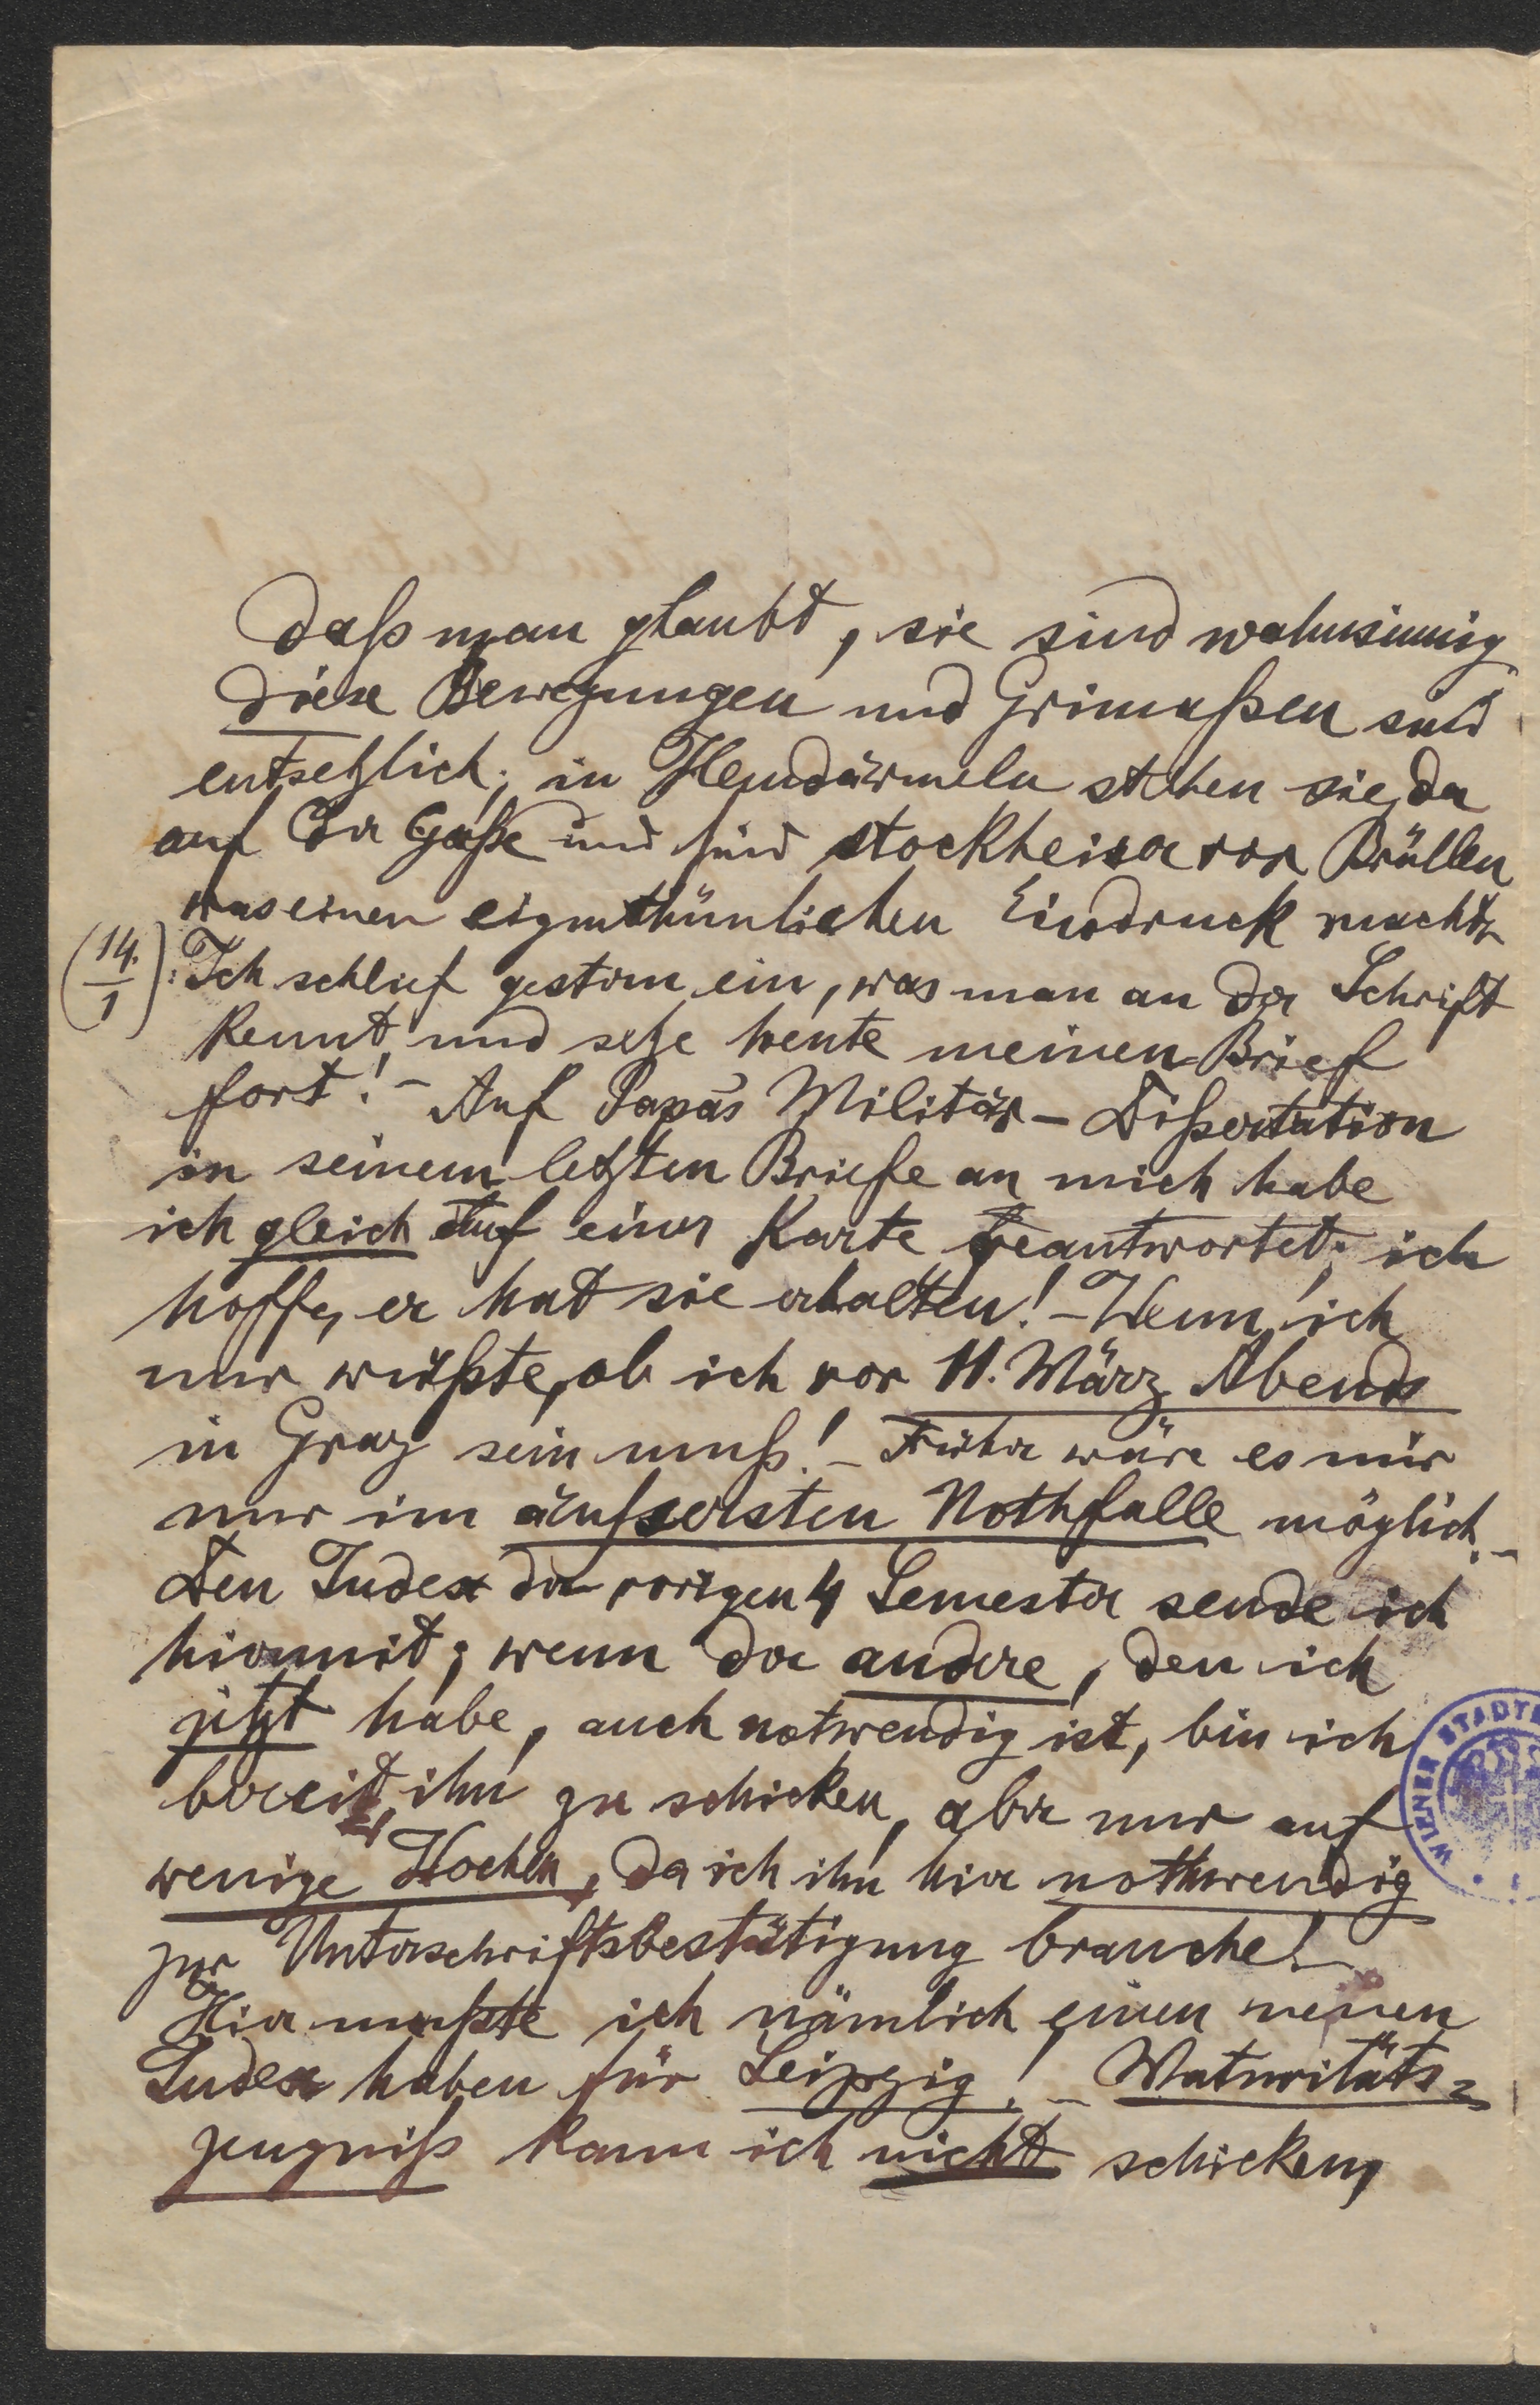 daß man glaubt, sie sind wahnsinnig
diese Bewegungen und Grimaßen sind
entsetzlich; in Hemdärmeln stehen sie da
auf der Gaße und sind stockheiser vor Brüllen
was einen eigenthümlichen Eindruck macht.
(14./1): Ich schlief gestern ein, was man an der Schrift
kennt, und setze heute meinen Brief
fort! – Auf Papas Militär – Dißertation
in seinem letzten Briefe an mich habe
ich gleich auf einer Karte geantwortet; ich
hoffe, er hat sie erhalten! – Wenn ich
nur wüßte, ob ich vor 11. März Abends
in Graz sein muß! – Früher wäre es mir
nur im äußersten Nothfalle möglich. –
Den Index der vorigen 4 Semester sende ich
hiermit; wenn der andere, den ich
jetzt habe, auch notwendig ist, bin ich
bereit, ihn zu schicken, aber nur auf
wenige Wochen, da ich ihn hier nothwendig
zur Unterschriftsbestätigung brauche! –
Hier mußte ich nämlich einen neuen
Index haben für Leipzig! – Maturitäts=
zeugniß kann ich nicht schicken,
WIENER STADTB